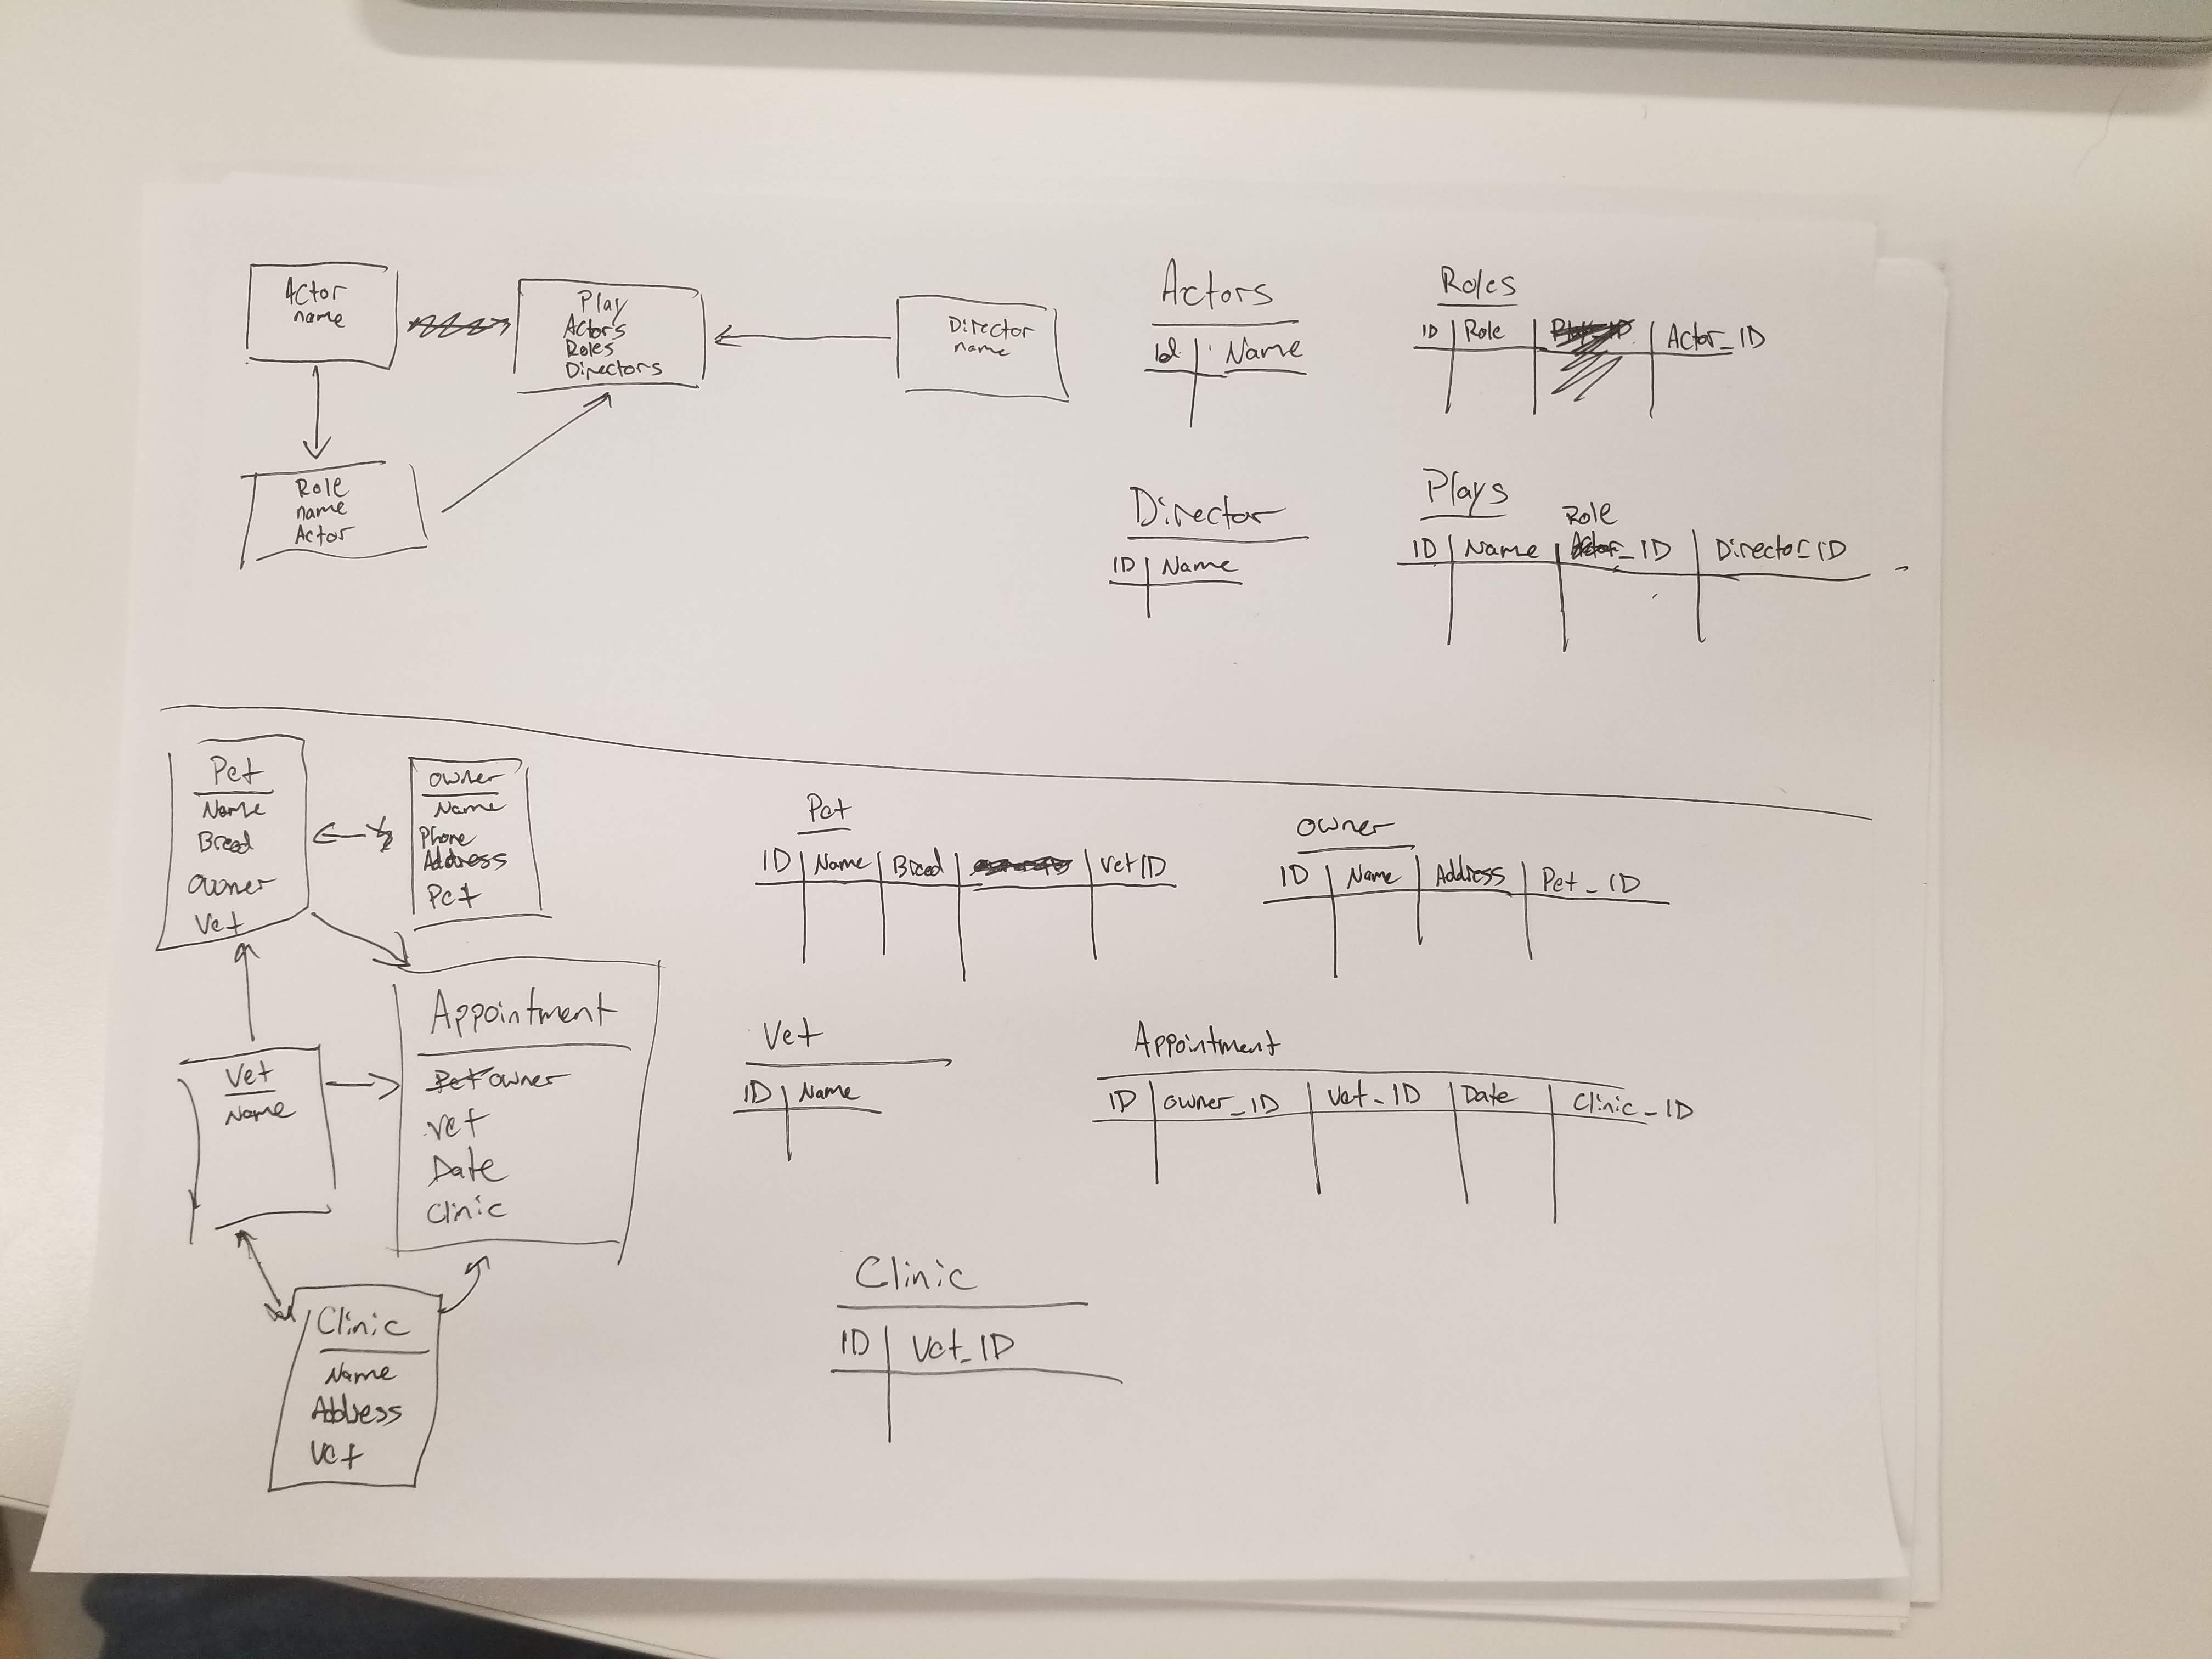 Actor
name
Play
Actors
Roles
Directors
Director
name
Role
name
Actor
Actors
Id Name
Roles
ID Role Actor_ID
Director
ID Name
Plays
Role
ID Name Actor_ID Director_ID
Pet
Name
Breed
owner
Vet
owner
Name
Phone
Address
Pet
Appointment
Pet owner
vet
Date
Clinic
Vet
Name
Clinic
Name
Address
Vet
Pet
ID Name Breed Vet ID
owner
ID Name Address Pet_ID
Vet
ID Name
Appointment
ID owner_ID Vet_ID Date Clinic_ID
Clinic
ID Vet_ID